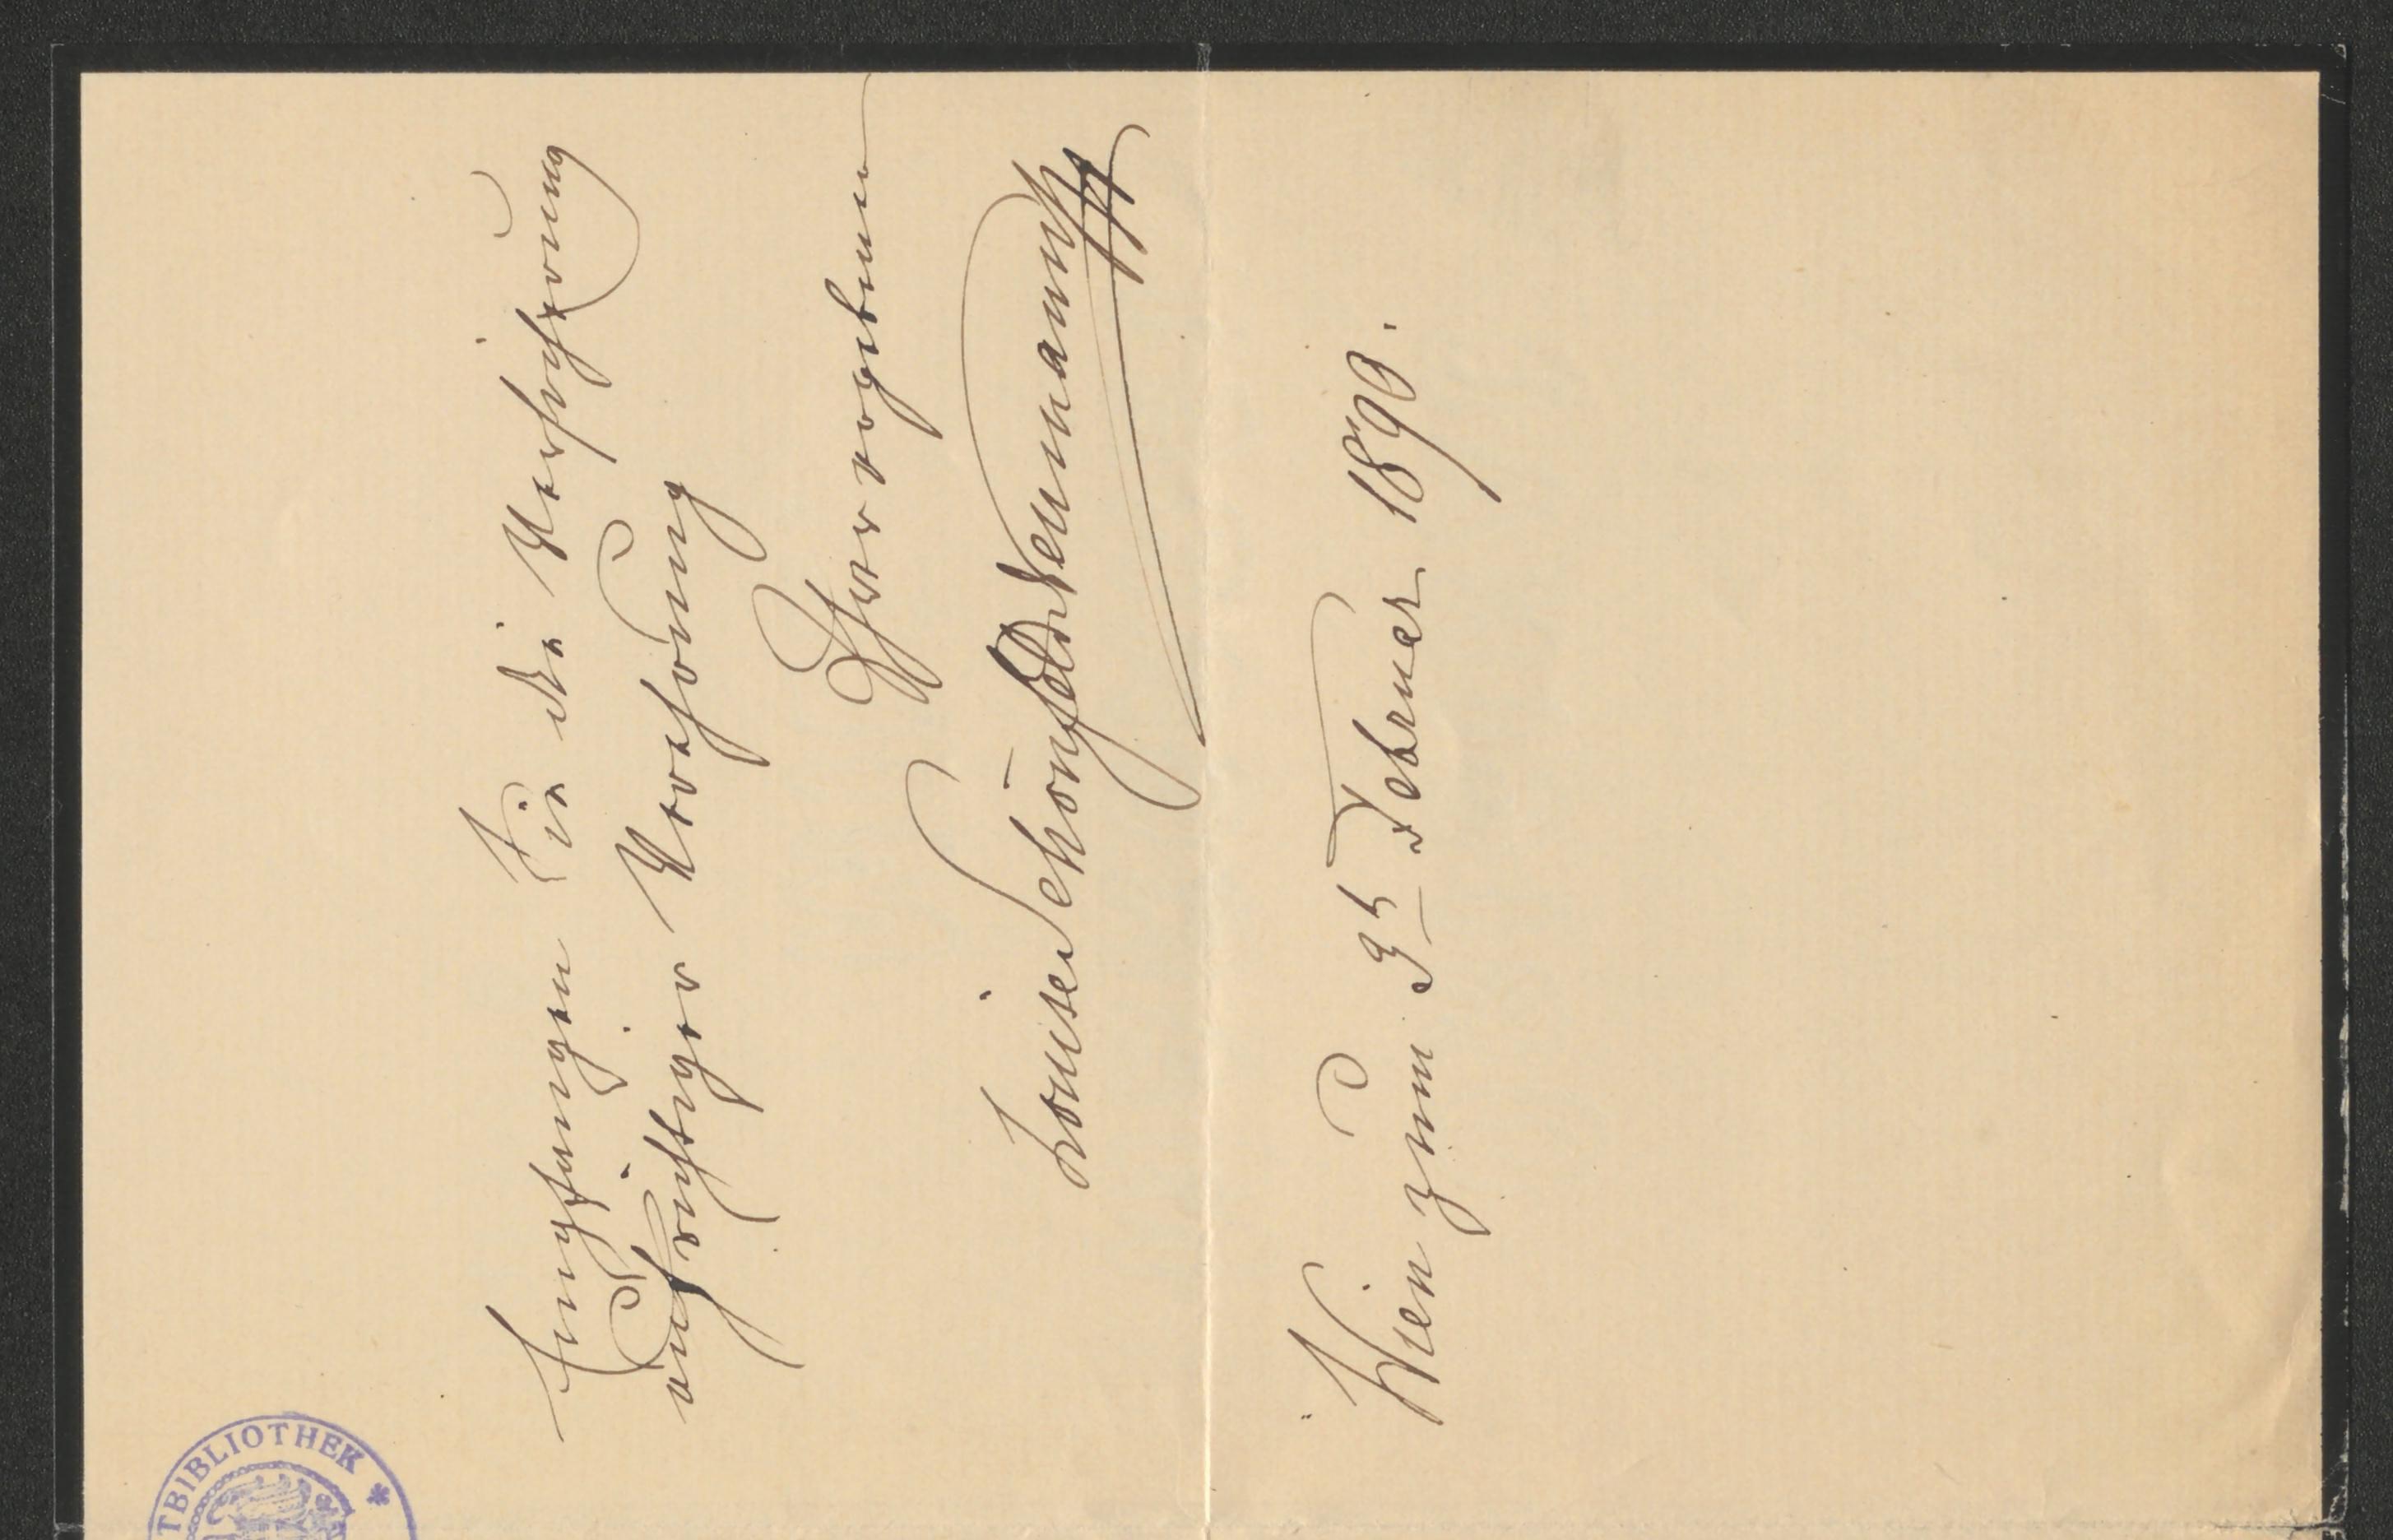 Empfangen Sie die Versicherung
aufrichtiger Verehrung
Ihrer ergebenen
Louise Schönfeld Neumann
Wien zum 3t Februar 1890.
TBIBLIOTHEK *